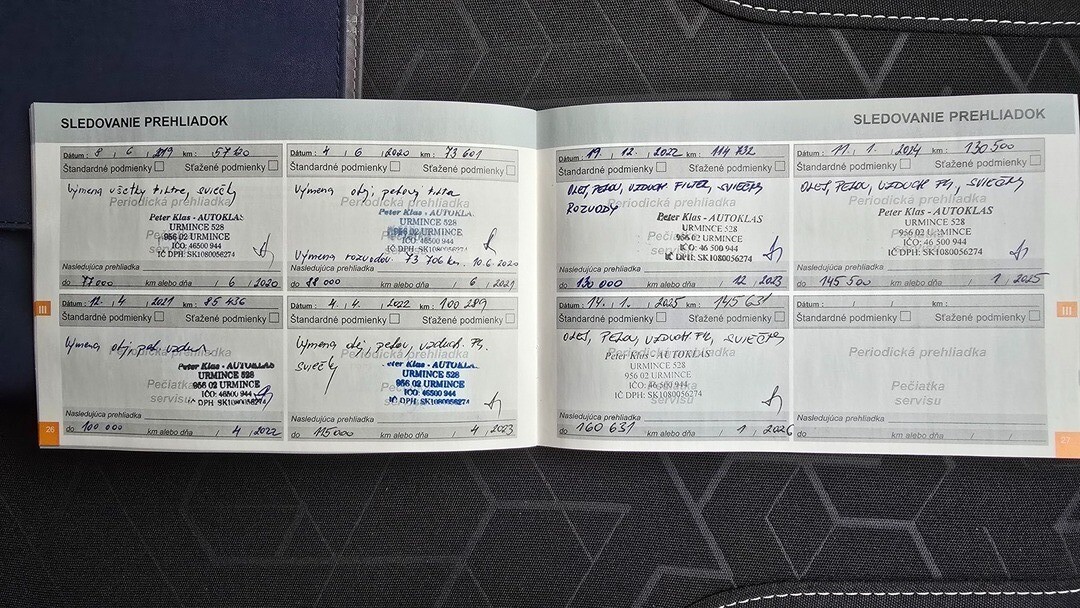 SLEDOVANIE PREHLIADOK
Dátum : 8 , 6 , 2019 km :
Štandardné podmienky Sťažené podmienky
Výmena všetky filtre, sviečky
Periodická prehliadka
Peter Klas - AUTOKLAS
URMINCE 528
956 02 URMINCE
IČO: 46500 944
IČ DPH: SK1080056274
Nasledujúca prehliadka
do 77000 km alebo dňa / 6 / 2020
Dátum : 4 , 6 , 2020 km : 73 601
Štandardné podmienky Sťažené podmienky
Výmena olej, peľový
Periodická prehliadka
Peter Klas - AUTOKLA
URMINCE 528
956 02 URMINCE
IČO: 46500 944
IČ DPH: SK1080056274
Výmena rozvodov. 73 706 km. 10.6.2020
Nasledujúca prehliadka
do 88 000 km alebo dňa / 6 / 2021
Dátum : 12. , 4 , 2021 km : 85 436
Štandardné podmienky Sťažené podmienky
Výmena olej, peľ, vzduch
Periodická prehliadka
Peter Klas - AUTOKLAS
URMINCE 528
956 02 URMINCE
IČO: 46500 944
DPH: SK1080056274
Pečiatka
servisu
Nasledujúca prehliadka
do 100 000 km alebo dňa / 4 / 2022
Dátum : 4 , 4. , 2022 km : 100 289
Štandardné podmienky Sťažené podmienky
Výmena olej, peľov, vzduch. F4.
Sviečky
Periodická prehliadka
eter Klas - AUTOKLA
URMINCE 528
956 02 URMINCE
IČO: 46500 944
IČ DPH: SK1080056274
Nasledujúca prehliadka
do 115000 km alebo dňa / 4 / 2023
26
III
SLEDOVANIE PREHLIADOK
Dátum : 19. , 12. , 2022 km : 114 732
Štandardné podmienky Sťažené podmienky
OLEJ, PEĽOV, VZDUCH FILTER, SVIEČKY
ROZVODY
Periodická prehliadka
Peter Klas - AUTOKLAS
URMINCE 528
956 02 URMINCE
IČO: 46 500 944
IČ DPH: SK1080056274
Nasledujúca prehliadka
do 130 000 km alebo dňa / 12 / 2023
Dátum : 11. , 1. , 2024 km : 130 500
Štandardné podmienky Sťažené podmienky
OLEJ, PEĽOV, VZDUCH F4, SVIEČKY
Periodická prehliadka
Peter Klas - AUTOKLAS
URMINCE 528
956 02 URMINCE
IČO: 46 500 944
IČ DPH: SK1080056274
Nasledujúca prehliadka
do 145 500 km alebo dňa / 1 / 2025
Dátum : 14. , 1. , 2025 km : 145 631
Štandardné podmienky Sťažené podmienky
OLEJ, PEĽOV, VZDUCH F4, SVIEČKY
Periodická prehliadka
Peter Klas - AUTOKLAS
URMINCE 528
956 02 URMINCE
IČO: 46 500 944
IČ DPH: SK1080056274
servisu
Nasledujúca prehliadka
do 160 631 km alebo dňa / 1 / 2026
Dátum : / / km :
Štandardné podmienky Sťažené podmienky
Periodická prehliadka
Pečiatka
servisu
Nasledujúca prehliadka
do km alebo dňa / /
III
27